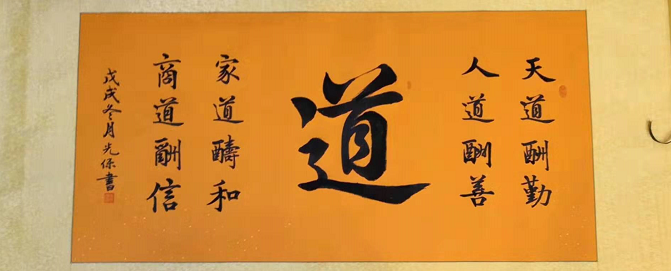 天道酬勤
人道酬善
道
家道醻和
商道酬信
戊戌冬月光保書